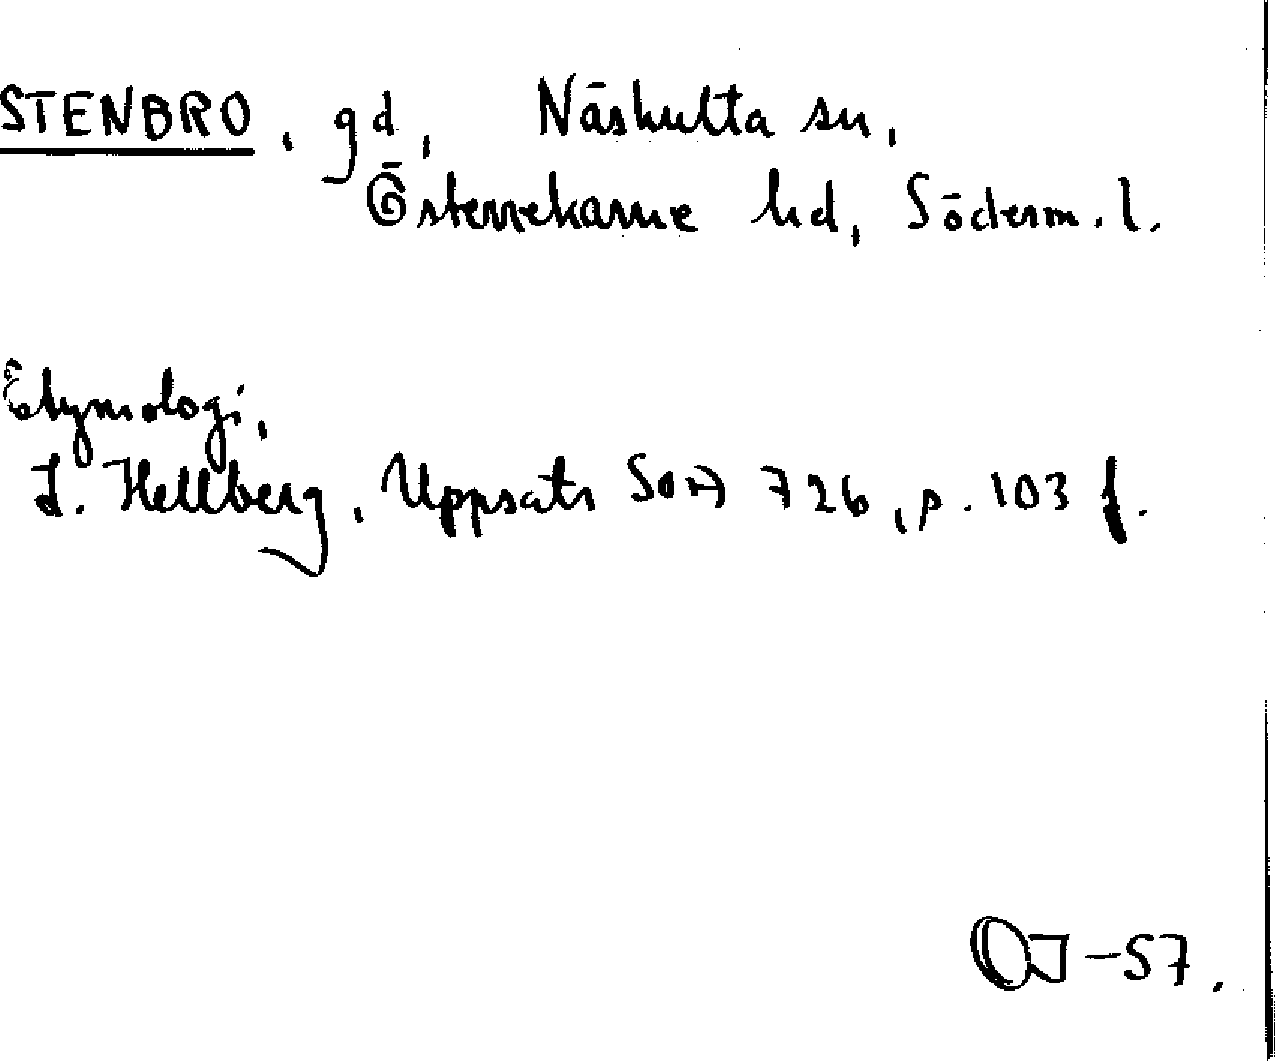 STENBRO, gd, Näshulta sn,
Österrekarne hd, Söderm. l.
Etymologi,
L. Hellberg, Uppsats SOA 726, p. 103 f.
OJ-57.